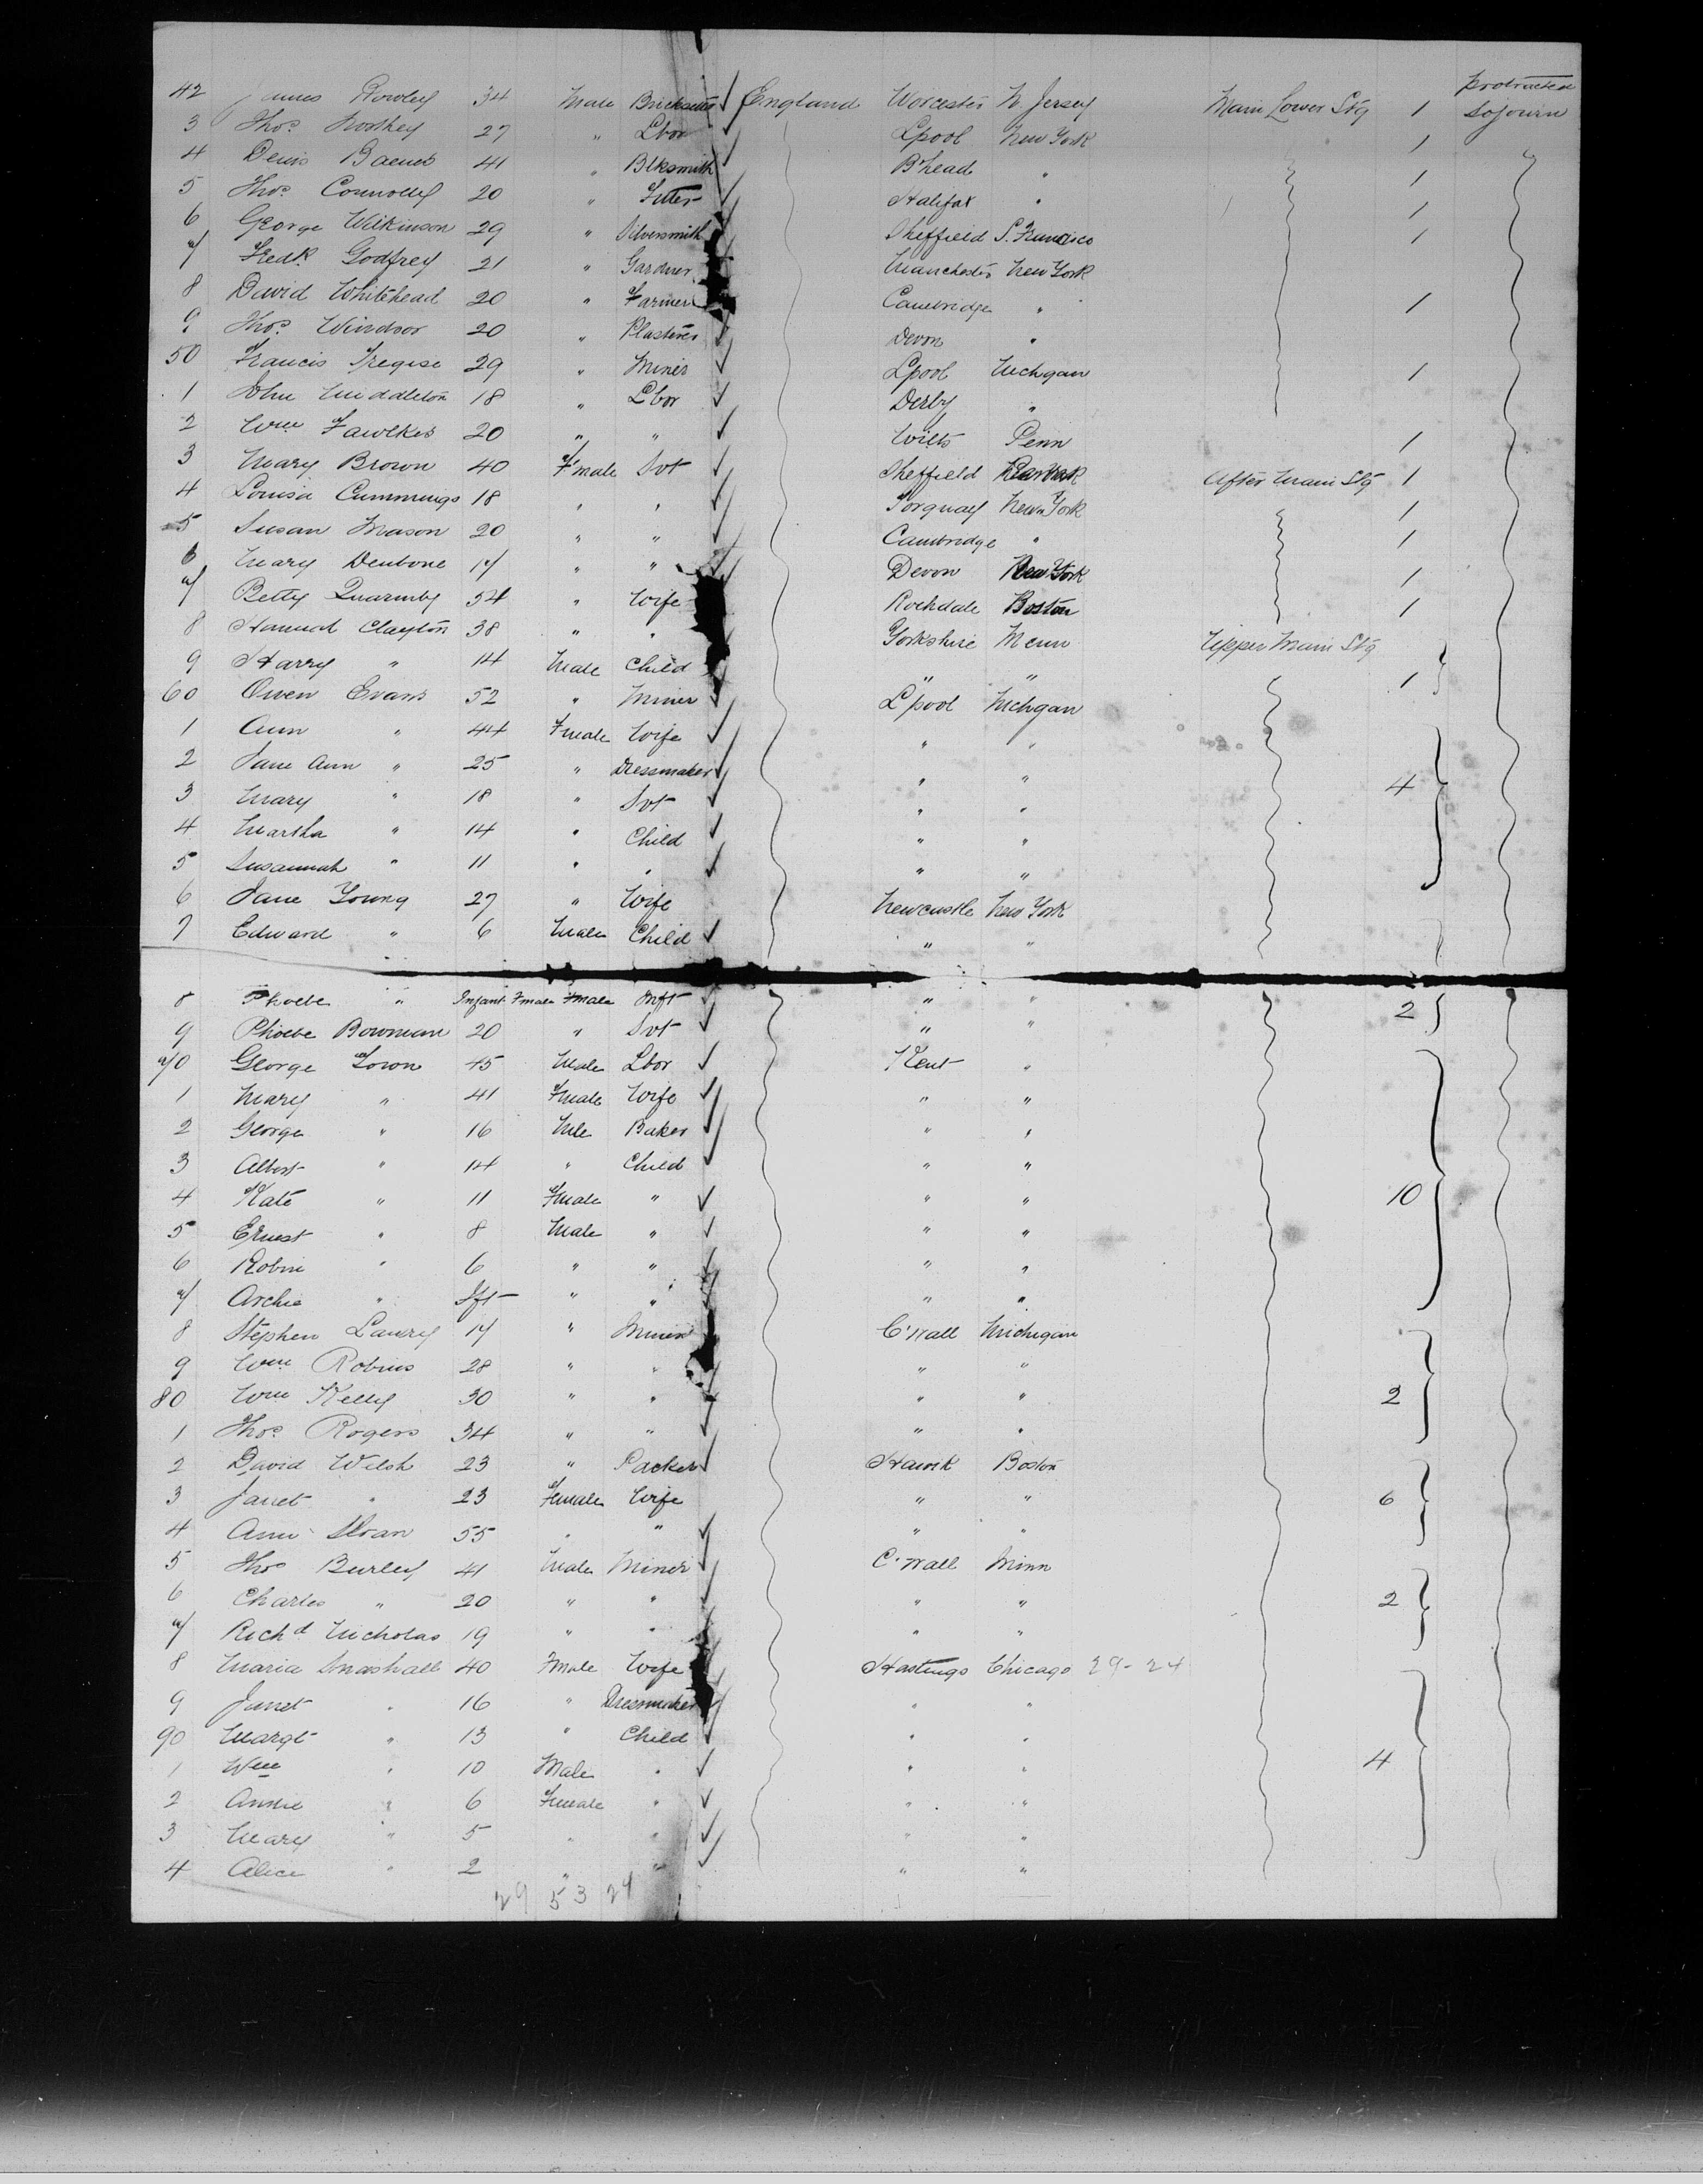 42 James Rowley 34 Male Bricksetter England Worcester N. Jersey Main Lower Stg 1 Protracted sojourn
3 Thos. Northey 27 " Lbor Lpool New York 1
4 Denis Baines 41 " Blksmith B'head " 1
5 Thos. Connolly 20 " Fitter Halifax " 1
6 George Wilkinson 29 " Silversmith Sheffield S. Francisco 1
7 Fredk. Godfrey 21 " Gardner Manchester New York
8 David Whitehead 20 " Farmer Cambridge " 1
9 Thos. Windsor 20 " Plasterer Devon "
50 Francis Tregise 29 " Miner Lpool Mchgan 1
1 John Middleton 18 " Lbor Derby "
2 Wm Fawlkes 20 " " Wilts Penn 1
3 Mary Brown 40 F'male Svt Sheffield After Main Stg 1
4 Louisa Cummings 18 " " Torquay New York 1
5 Susan Mason 20 " " Cambridge " 1
6 Mary Denbone 17 " " Devon New York 1
7 Betty Quarmby 54 " Wife Rochdale Boston 1
8 Hannah Clayton 38 " " Yorkshire Menn Upper Main Stg
9 Harry " 14 Male Child " " 1
60 Owen Evans 52 " Miner L'pool Mchgan
1 Ann " 44 Fmale Wife " "
2 Jane Ann " 25 " Dressmaker " "
3 Mary " 18 " Svt " " 4
4 Martha " 14 " Child " "
5 Susannah " 11 " " " "
6 Jane Young 27 " Wife Newcastle New York
7 Edward " 6 Male Child " "
8 Phoebe " Infant Fmale Fmale Inft " " 2
9 Phoebe Bowman 20 " Svt " "
70 George Town 45 Male Lbor Kent "
1 Mary " 41 Fmale Wife " "
2 George " 16 Mle Baker " "
3 Albert " 14 " Child " "
4 Kate " 11 Fmale " " " 10
5 Ernest " 8 Male " " "
6 Robin " 6 " " " "
7 Archie " Ift " " " "
8 Stephen Lawry 17 " Miner C'wall Michigan
9 Wm Robins 28 " " " "
80 Wm Kelly 30 " " " " 2
1 Thos. Rogers 34 " " " "
2 David Welsh 23 " Packer Hawik Boston
3 Janet " 23 Female Wife " " 6
4 Ann Sloan 55 " " " "
5 Thos Burley 41 Male Miner C'wall Minn
6 Charles " 20 " " " " 2
7 Richd Nicholas 19 " " " "
8 Maria Smashall 40 Fmale Wife Hastings Chicago 29-24
9 Janet " 16 " Dressmaker " "
90 Margt " 13 " Child " "
1 Wm " 10 Male " " " 4
2 Annie " 6 Fmale " " "
3 Mary " 5 " " " "
4 Alice " 2 " " " "
29 53 24